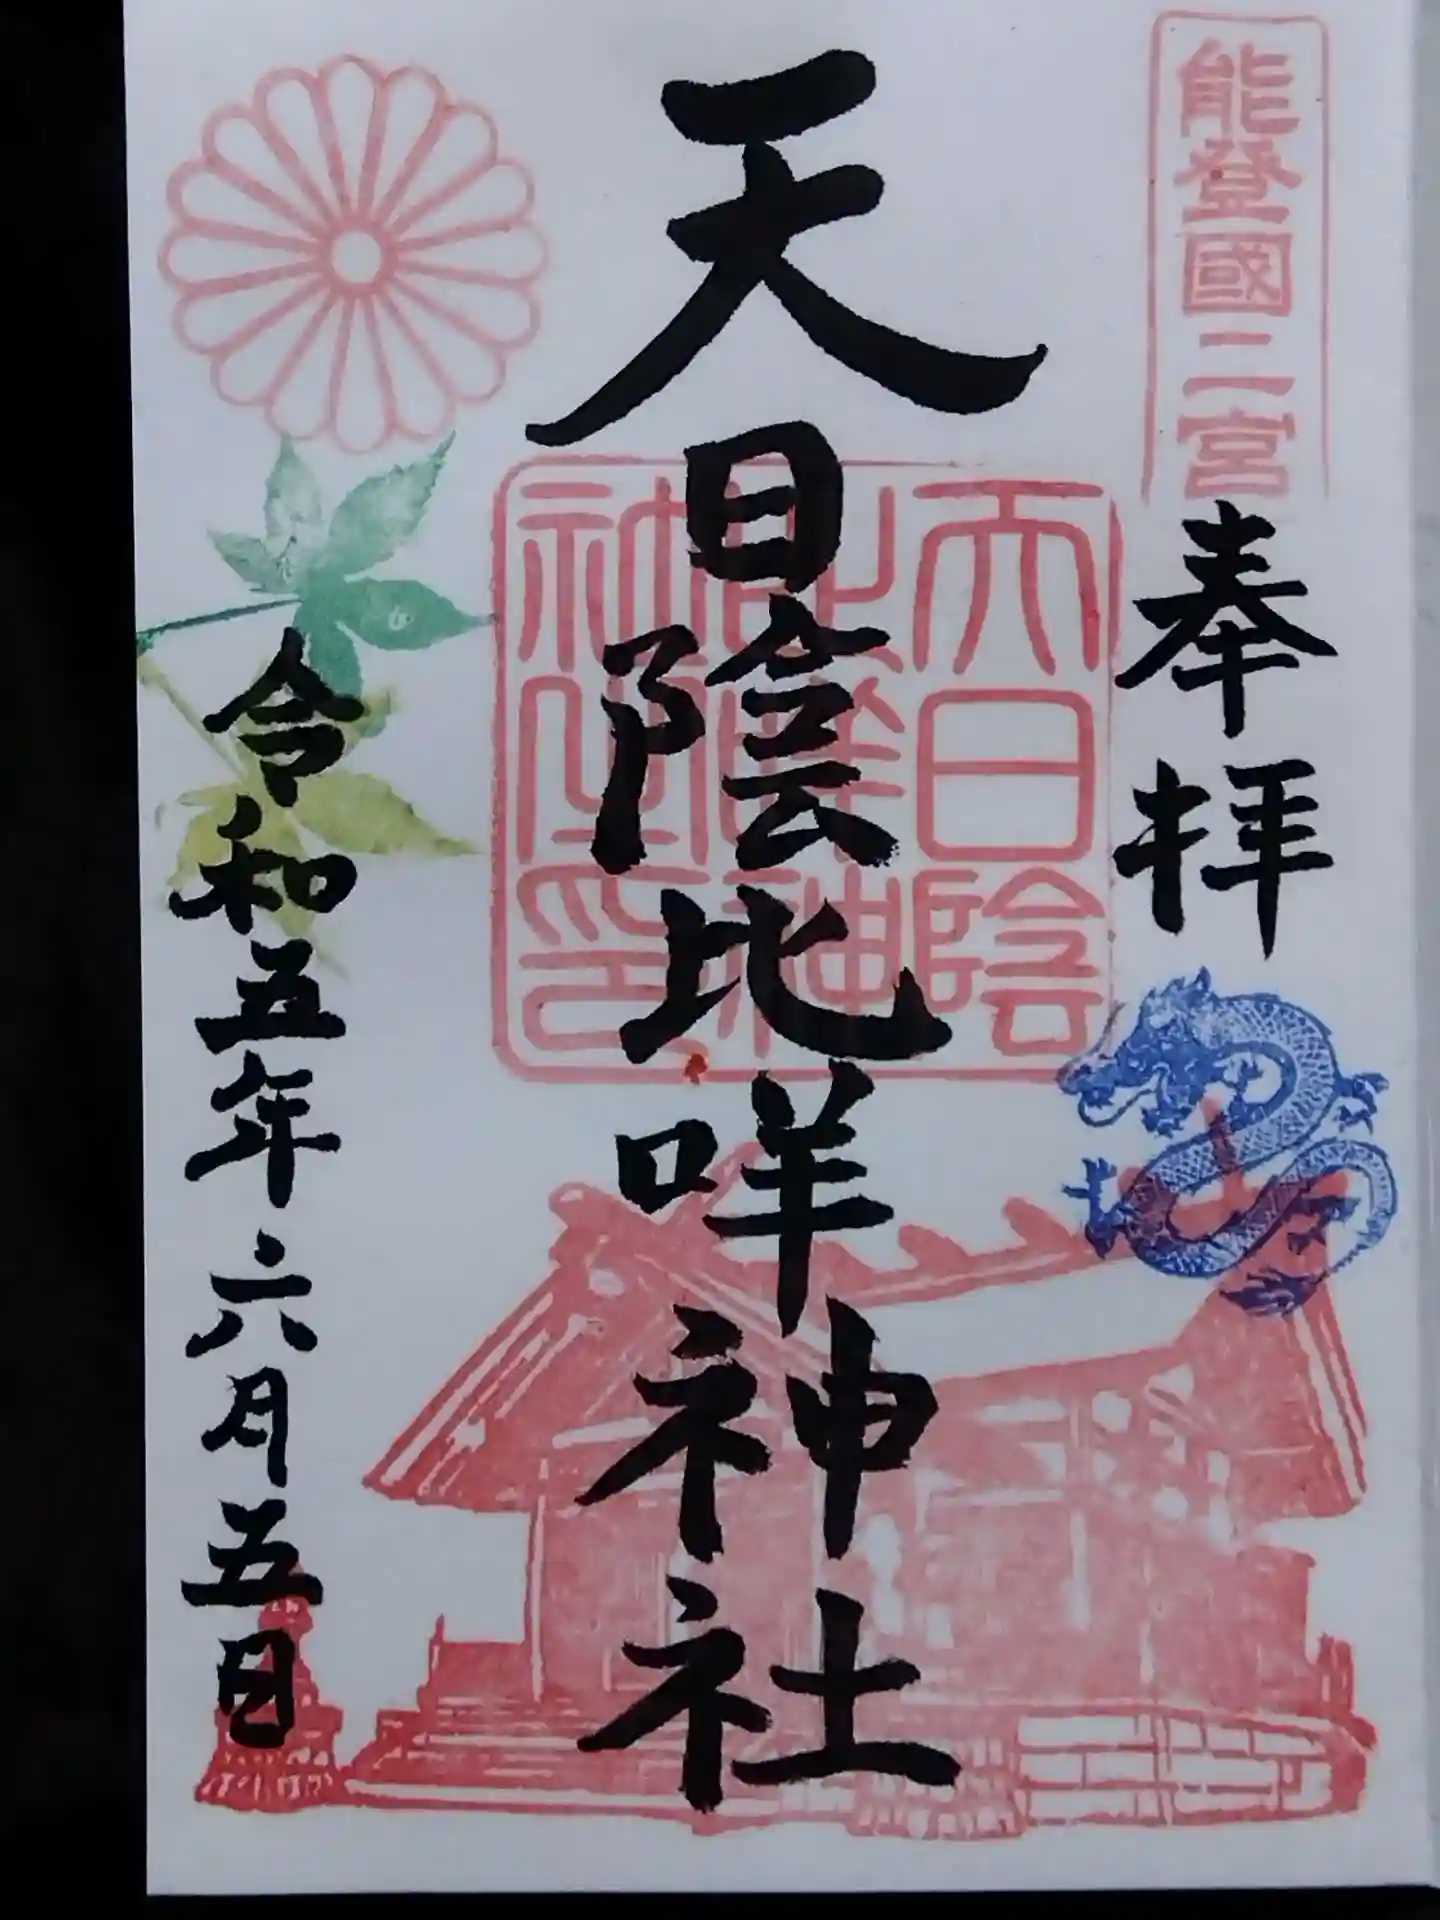 能登國二宮
奉拝
天日陰比咩神社
天日陰
比咩神
社之印
令和五年六月五日